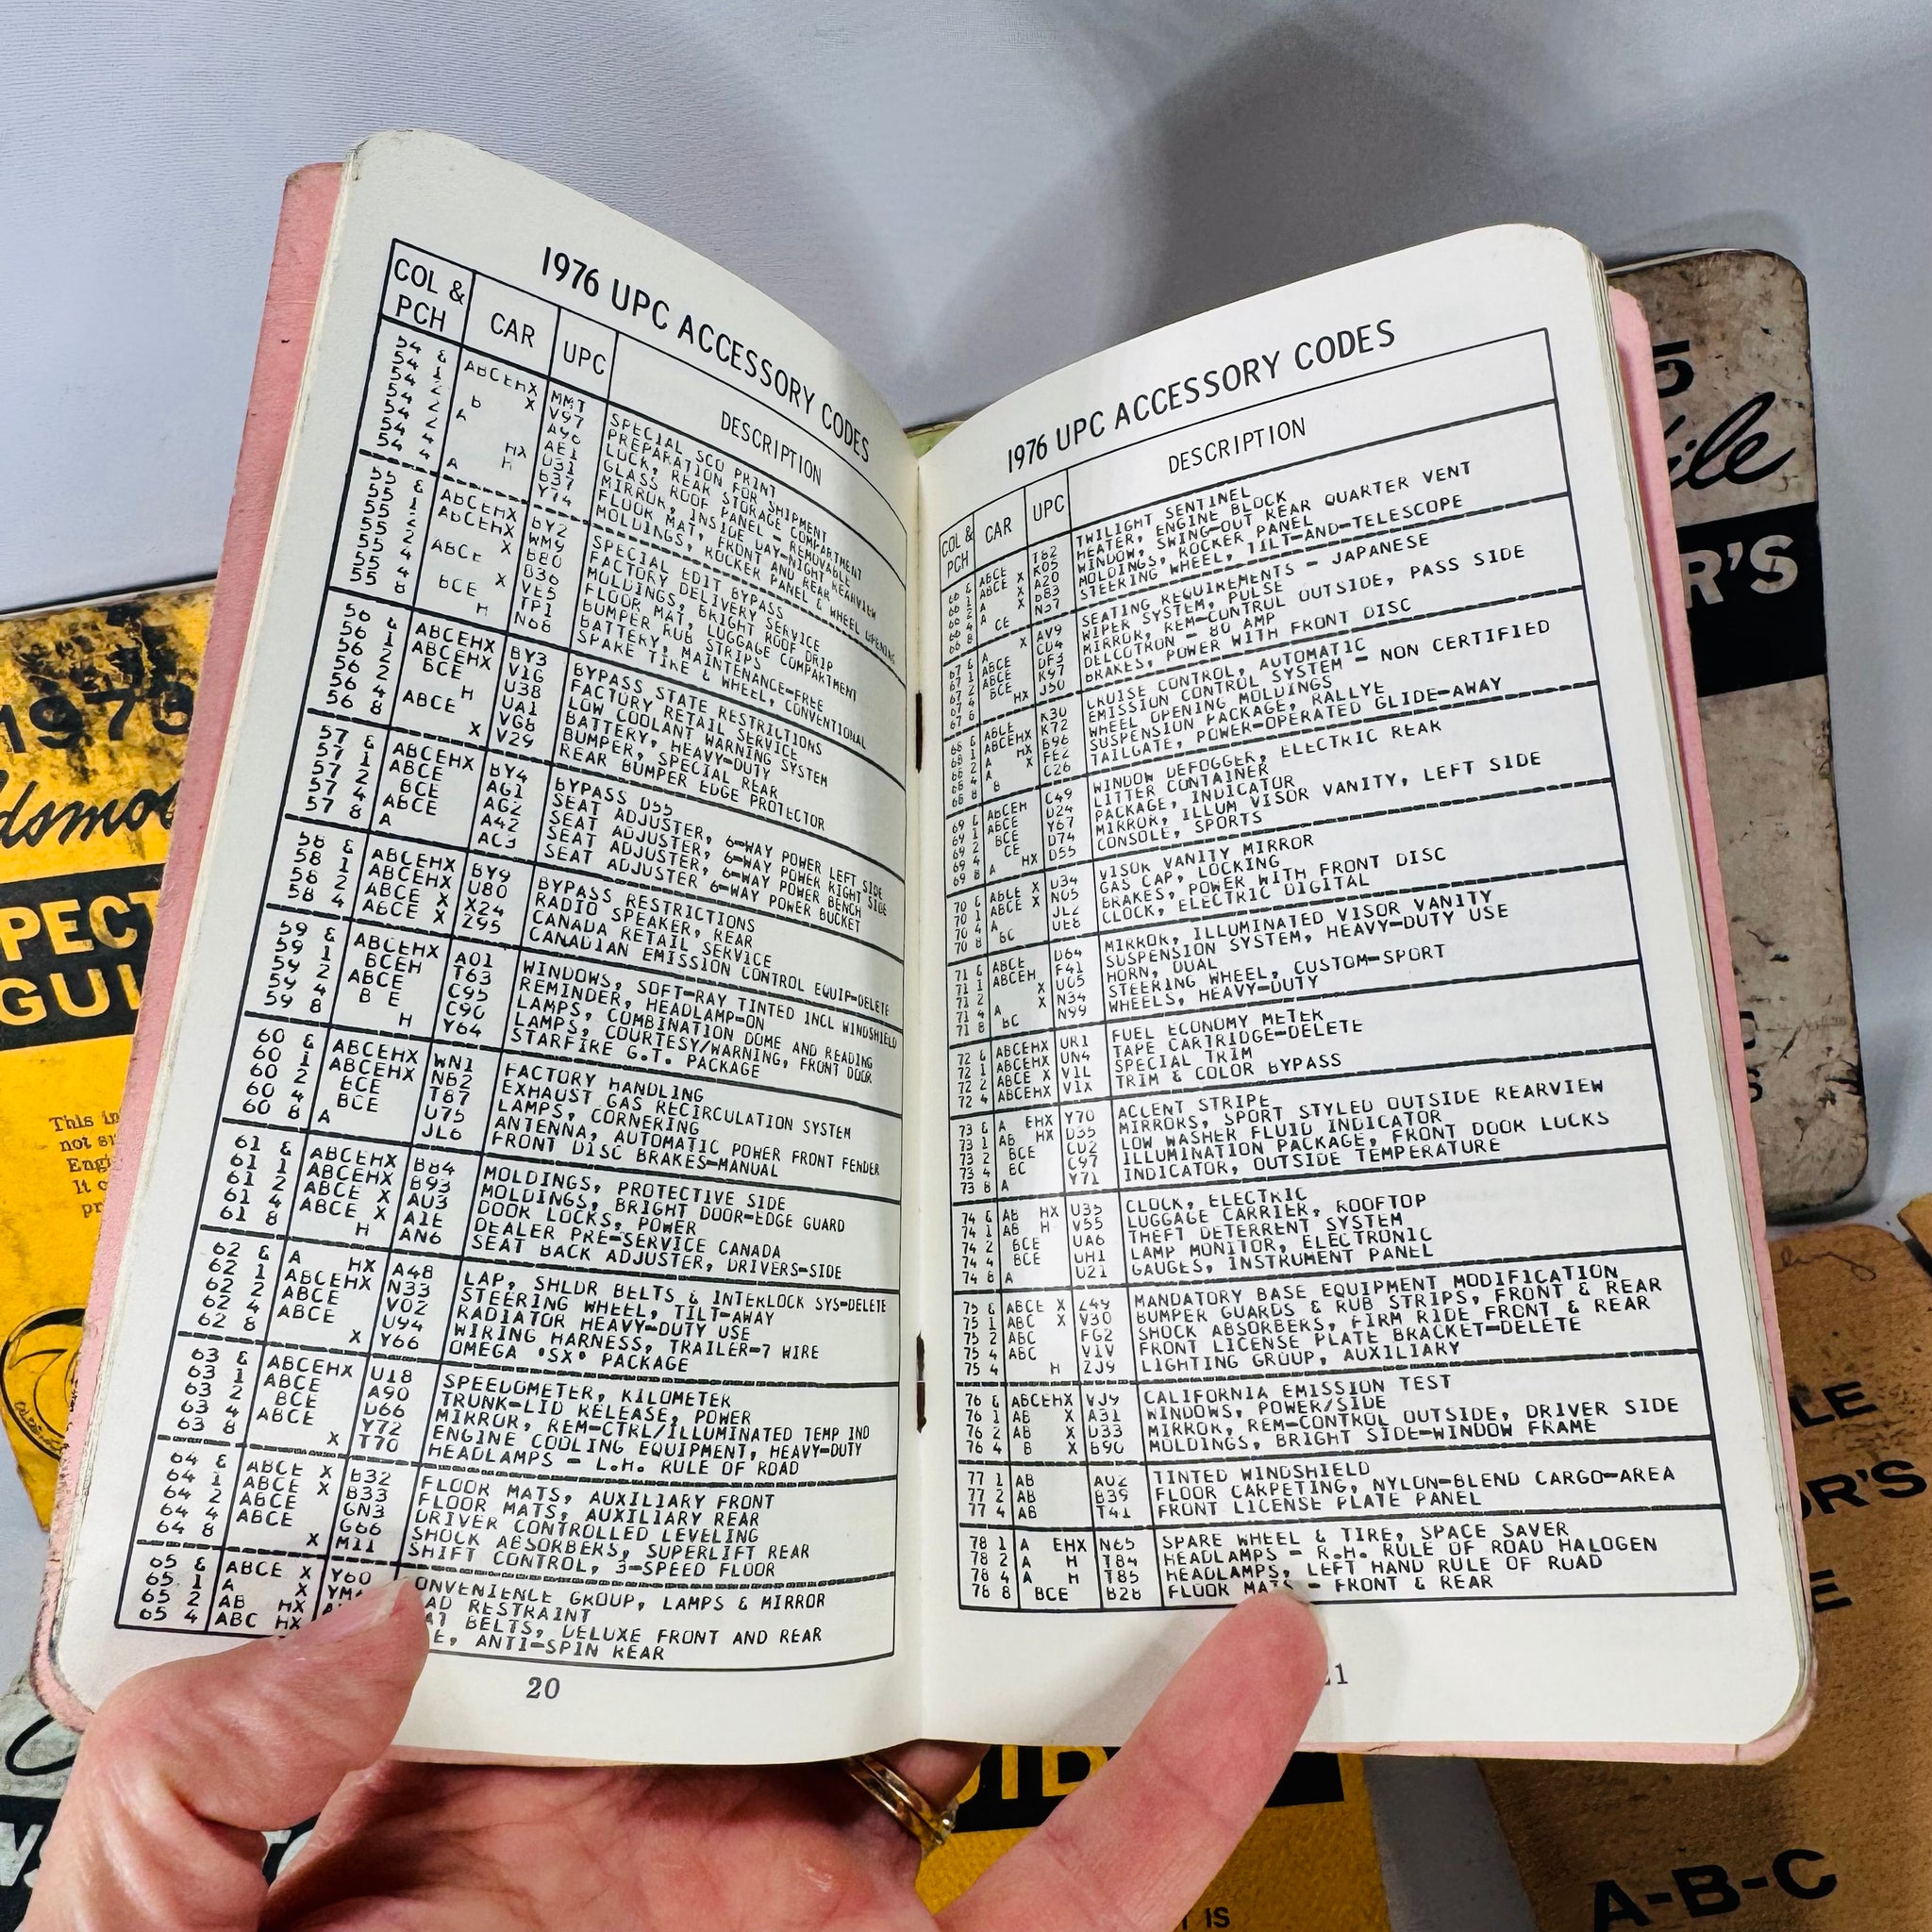 1976 UPC ACCESSORY CODES
COL & PCH CAR UPC DESCRIPTION
54 & ABCEHX MMT SPECIAL SCO PRINT
54 1 X V97 PREPARATION FOR SHIPMENT
54 2 B A90 LOCK, REAR STORAGE COMPARTMENT
54 2 A AE1 GLASS ROOF PANEL - REMOVABLE
54 2 HX U31 MIRROR, INSIDE DAY-NIGHT REARVIEW
54 4 H B37 FLOOR MAT, FRONT AND REAR
54 4 A Y74 MOLDINGS, ROCKER PANEL & WHEEL OPENING
55 & ABCEHX BY2 SPECIAL EDIT BYPASS
55 1 ABCEHX WM9 FACTORY DELIVERY SERVICE
55 2 X B80 MOLDINGS, BRIGHT ROOF DRIP
55 2 ABCE B36 FLOOR MAT, LUGGAGE COMPARTMENT
55 4 X VE5 BUMPER RUB STRIPS
55 4 BCE TP1 BATTERY, MAINTENANCE-FREE
55 8 H N68 SPARE TIRE & WHEEL, CONVENTIONAL
56 & ABCEHX BY3 BYPASS STATE RESTRICTIONS
56 1 ABCEHX V1G FACTORY RETAIL SERVICE
56 2 BCE U38 LOW COOLANT WARNING SYSTEM
56 2 H UA1 BATTERY, HEAVY-DUTY
56 4 ABCE VG8 BUMPER, SPECIAL REAR
56 8 X V29 REAR BUMPER EDGE PROTECTOR
57 & ABCEHX BY4 BYPASS D55
57 1 ABCE AG1 SEAT ADJUSTER, 6-WAY POWER LEFT SIDE
57 2 BCE AG2 SEAT ADJUSTER, 6-WAY POWER RIGHT SIDE
57 4 ABCE A42 SEAT ADJUSTER, 6-WAY POWER BENCH
57 8 A AC3 SEAT ADJUSTER 6-WAY POWER BUCKET
58 & ABCEHX BY9 BYPASS RESTRICTIONS
58 1 ABCEHX U80 RADIO SPEAKER, REAR
58 2 ABCE X X24 CANADA RETAIL SERVICE
58 4 ABCE X Z95 CANADIAN EMISSION CONTROL EQUIP-DELETE
59 & ABCEHX A01 WINDOWS, SOFT-RAY TINTED INCL WINDSHIELD
59 1 BCEH T63 REMINDER, HEADLAMP-ON
59 2 ABCE C95 LAMPS, COMBINATION DOME AND READING
59 4 B E C90 LAMPS, COURTESY/WARNING, FRONT DOOR
59 8 H Y64 STARFIRE G.T. PACKAGE
60 & ABCEHX WN1 FACTORY HANDLING
60 1 ABCEHX NB2 EXHAUST GAS RECIRCULATION SYSTEM
60 2 BCE T87 LAMPS, CORNERING
60 4 BCE U75 ANTENNA, AUTOMATIC POWER FRONT FENDER
60 8 A JL6 FRONT DISC BRAKES-MANUAL
61 & ABCEHX B84 MOLDINGS, PROTECTIVE SIDE
61 1 ABCEHX B93 MOLDINGS, BRIGHT DOOR-EDGE GUARD
61 2 ABCE X AU3 DOOR LOCKS, POWER
61 4 ABCE X A1E DEALER PRE-SERVICE CANADA
61 8 H AN6 SEAT BACK ADJUSTER, DRIVERS-SIDE
62 & A HX A48 LAP, SHLDR BELTS & INTERLOCK SYS-DELETE
62 1 ABCEHX N33 STEERING WHEEL, TILT-AWAY
62 2 ABCE V02 RADIATOR HEAVY-DUTY USE
62 4 ABCE U94 WIRING HARNESS, TRAILER-7 WIRE
62 8 X Y66 OMEGA "SX" PACKAGE
63 & ABCEHX U18 SPEEDOMETER, KILOMETER
63 1 ABCE A90 TRUNK-LID RELEASE, POWER
63 2 BCE D66 MIRROR, REM-CTRL/ILLUMINATED TEMP IND
63 4 ABCE Y72 ENGINE COOLING EQUIPMENT, HEAVY-DUTY
63 8 X T70 HEADLAMPS - L.H. RULE OF ROAD
64 & ABCE X B32 FLOOR MATS, AUXILIARY FRONT
64 1 ABCE X B33 FLOOR MATS, AUXILIARY REAR
64 2 ABCE GN3 DRIVER CONTROLLED LEVELING
64 4 ABCE G66 SHOCK ABSORBERS, SUPERLIFT REAR
64 8 X M11 SHIFT CONTROL, 3-SPEED FLOOR
65 & ABCE X Y60 CONVENIENCE GROUP, LAMPS & MIRROR
65 1 A X RESTRAINT
65 2 AB HX BELTS, DELUXE FRONT AND REAR
65 4 ABC HX ANTI-SPIN REAR
20
1976 UPC ACCESSORY CODES
COL & PCH CAR UPC DESCRIPTION
66 & ABCE X T82 TWILIGHT SENTINEL
66 1 ABCE X K05 HEATER, ENGINE BLOCK
66 2 A X A20 WINDOW, SWING-OUT REAR QUARTER VENT
66 4 A X B83 MOLDINGS, ROCKER PANEL
66 8 CE N37 STEERING WHEEL, TILT-AND-TELESCOPE
67 & X AV9 SEATING REQUIREMENTS - JAPANESE
67 1 A CD4 WIPER SYSTEM, PULSE
67 2 ABCE DF3 MIRROR, REM-CONTROL OUTSIDE, PASS SIDE
67 2 BCE K97 DELCOTRON - 80 AMP
67 6 HX J50 BRAKES, POWER WITH FRONT DISC
68 & ABCE K30 CRUISE CONTROL, AUTOMATIC
68 1 ABCEHX K72 EMISSION CONTROL SYSTEM - NON CERTIFIED
68 2 A HX B96 WHEEL OPENING MOLDINGS
68 4 A X FE2 SUSPENSION PACKAGE, RALLYE
68 8 B C26 TAILGATE, POWER-OPERATED GLIDE-AWAY
69 & ABCEH C49 WINDOW DEFOGGER, ELECTRIC REAR
69 1 ABCE D24 LITTER CONTAINER
69 2 BCE Y67 PACKAGE, INDICATOR
69 4 CE D74 MIRROR, ILLUM VISOR VANITY, LEFT SIDE
69 8 A HX D55 CONSOLE, SPORTS
70 & ABCE X D34 VISOR VANITY MIRROR
70 1 ABCE X N05 GAS CAP, LOCKING
70 4 A JL2 BRAKES, POWER WITH FRONT DISC
70 8 BC UE8 CLOCK, ELECTRIC DIGITAL
71 & ABCE D64 MIRROR, ILLUMINATED VISOR VANITY
71 1 ABCEH F41 SUSPENSION SYSTEM, HEAVY-DUTY USE
71 2 X U05 HORN, DUAL
71 4 A X N34 STEERING WHEEL, CUSTOM-SPORT
71 8 BC N99 WHEELS, HEAVY-DUTY
72 & ABCEHX UR1 FUEL ECONOMY METER
72 1 ABCEHX UN4 TAPE CARTRIDGE-DELETE
72 2 ABCE X V1L SPECIAL TRIM
72 4 ABCEHX V1X TRIM & COLOR BYPASS
73 & A EHX Y70 ACCENT STRIPE
73 1 AB HX D35 MIRRORS, SPORT STYLED OUTSIDE REARVIEW
73 2 BCE CD2 LOW WASHER FLUID INDICATOR
73 4 BC C97 ILLUMINATION PACKAGE, FRONT DOOR LOCKS
73 8 A Y71 INDICATOR, OUTSIDE TEMPERATURE
74 & AB HX U35 CLOCK, ELECTRIC
74 1 AB H V55 LUGGAGE CARRIER, ROOFTOP
74 2 BCE UA6 THEFT DETERRENT SYSTEM
74 4 BCE UH1 LAMP MONITOR, ELECTRONIC
74 8 A U21 GAUGES, INSTRUMENT PANEL
75 & ABCE X Z49 MANDATORY BASE EQUIPMENT MODIFICATION
75 1 ABC X V30 BUMPER GUARDS & RUB STRIPS, FRONT & REAR
75 2 ABC FG2 SHOCK ABSORBERS, FIRM RIDE FRONT & REAR
75 4 ABC V1V FRONT LICENSE PLATE BRACKET-DELETE
75 4 H ZJ9 LIGHTING GROUP, AUXILIARY
76 & ABCEHX VJ9 CALIFORNIA EMISSION TEST
76 1 AB X A31 WINDOWS, POWER/SIDE
76 2 AB X D33 MIRROR, REM-CONTROL OUTSIDE, DRIVER SIDE
76 4 B X B90 MOLDINGS, BRIGHT SIDE-WINDOW FRAME
77 1 AB A02 TINTED WINDSHIELD
77 2 AB B39 FLOOR CARPETING, NYLON-BLEND CARGO-AREA
77 4 AB T41 FRONT LICENSE PLATE PANEL
78 1 A EHX N65 SPARE WHEEL & TIRE, SPACE SAVER
78 2 A H T84 HEADLAMPS - R.H. RULE OF ROAD HALOGEN
78 4 A H T85 HEADLAMPS, LEFT HAND RULE OF ROAD
78 8 BCE B28 FLOOR MATS - FRONT & REAR
1975
GUI
This in
not su
Engi
It c
pr
R'S
OR'S
A-B-C
IS